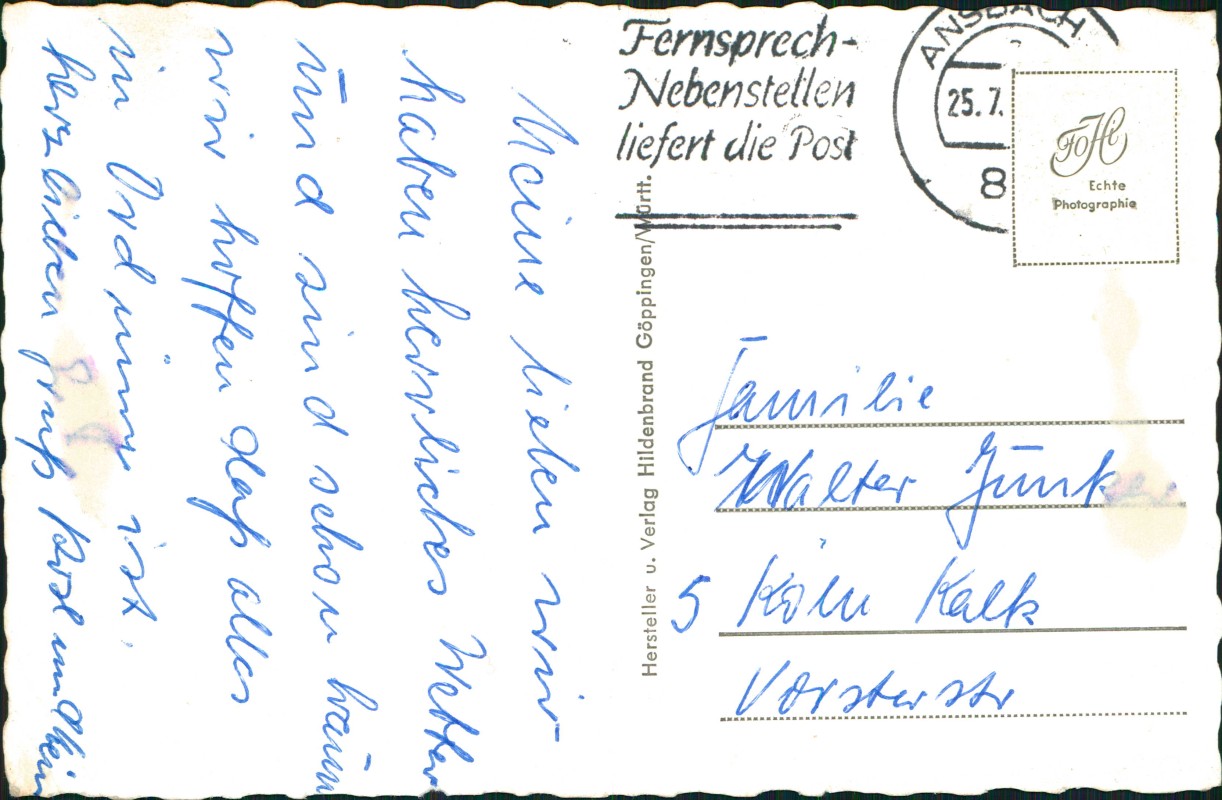 Meine lieben wir
haben herrliches Wetter
und sind schon braun
wir hoffen daß alles
in Ordnung ist.
herzlichen gruß Karl und
Fernsprech-
Nebenstellen
liefert die Post
ANSBACH
25.7.
8
FOHi
Echte
Photographie
Hersteller u. Verlag Hildenbrand Göppingen/Württ.
Familie
Walter Junker
5 Köln Kalk
Vorsterstr